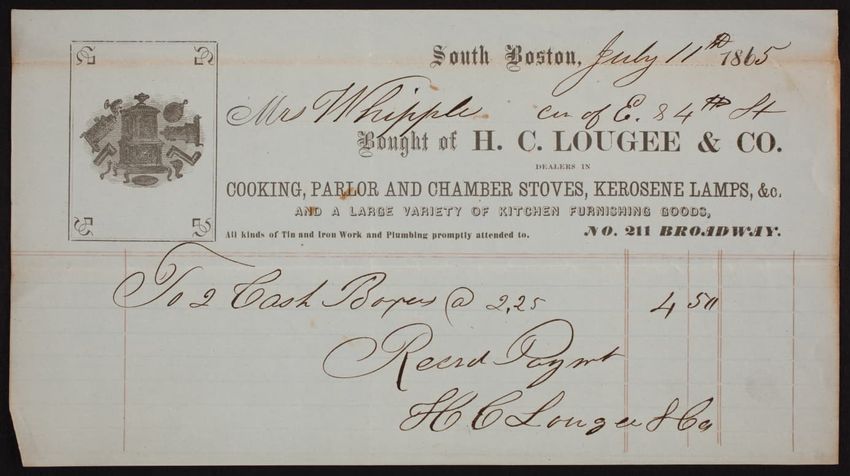 South Boston, July 11th 1865
Mrs Whipple cor of E. & 4th St
Bought of H. C. LOUGEE & CO.
DEALERS IN
COOKING, PARLOR AND CHAMBER STOVES, KEROSENE LAMPS, &c.
AND A LARGE VARIETY OF KITCHEN FURNISHING GOODS,
All kinds of Tin and Iron Work and Plumbing promptly attended to. NO. 211 BROADWAY.
To 2 Cash Boxes @ 2,25 4 50
Recd Paymt
H C Lougee & Co